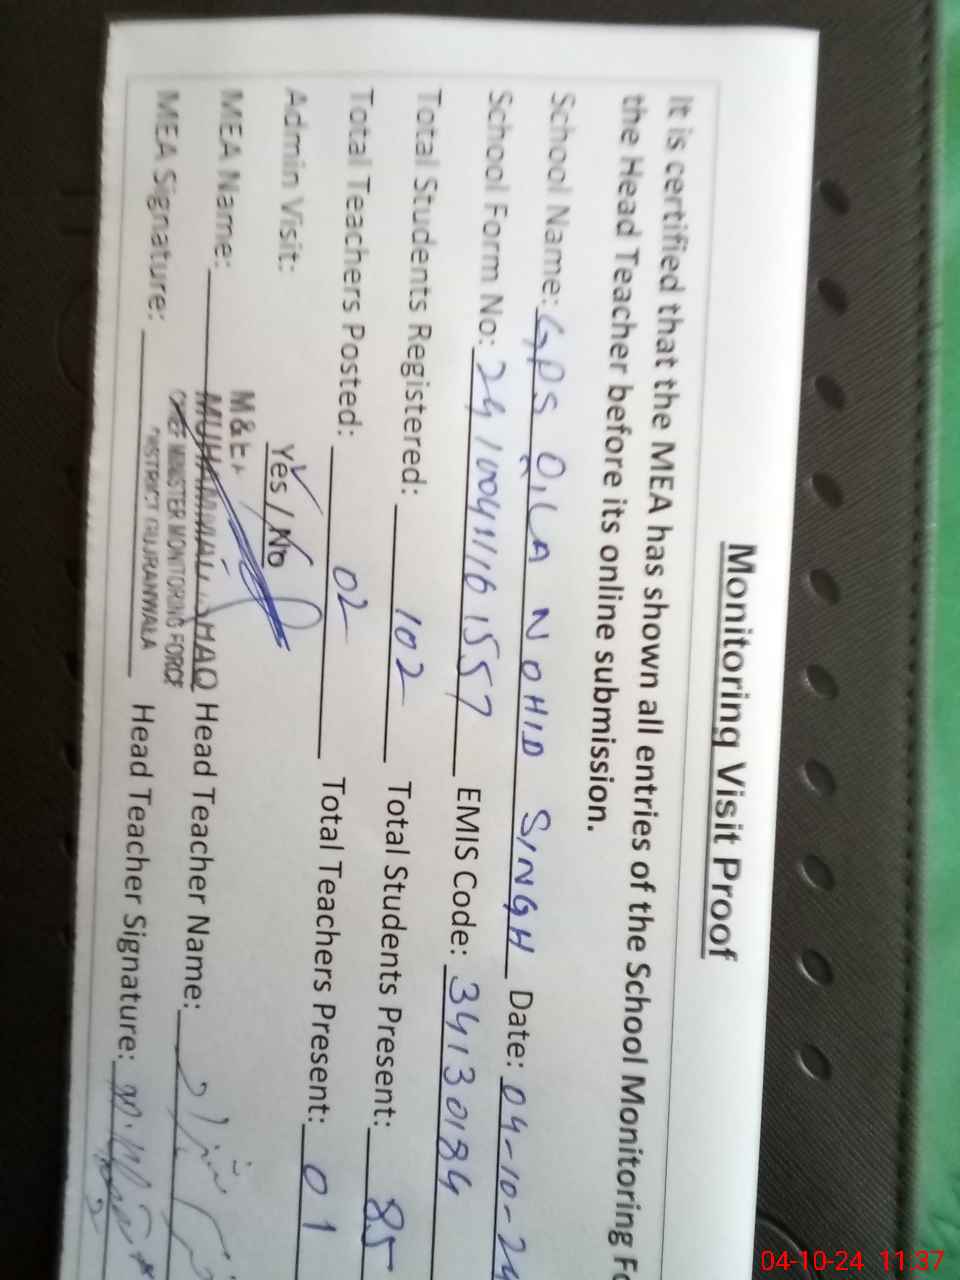 Monitoring Visit Proof
It is certified that the MEA has shown all entries of the School Monitoring Fo
the Head Teacher before its online submission.
School Name: GPS QILA NOHID SINGH Date: 04-10-24
School Form No: 24100411161557 EMIS Code: 34130184
Total Students Registered: 102 Total Students Present: 85
Total Teachers Posted: 02 Total Teachers Present: 01
Admin Visit: Yes / No
M & E
MEA Name: MUHAMMAD HAQ Head Teacher Name:
CHIEF MINISTER MONITORING FORCE
MEA Signature: DISTRICT GUJRANWALA Head Teacher Signature:
04-10-24 11:37